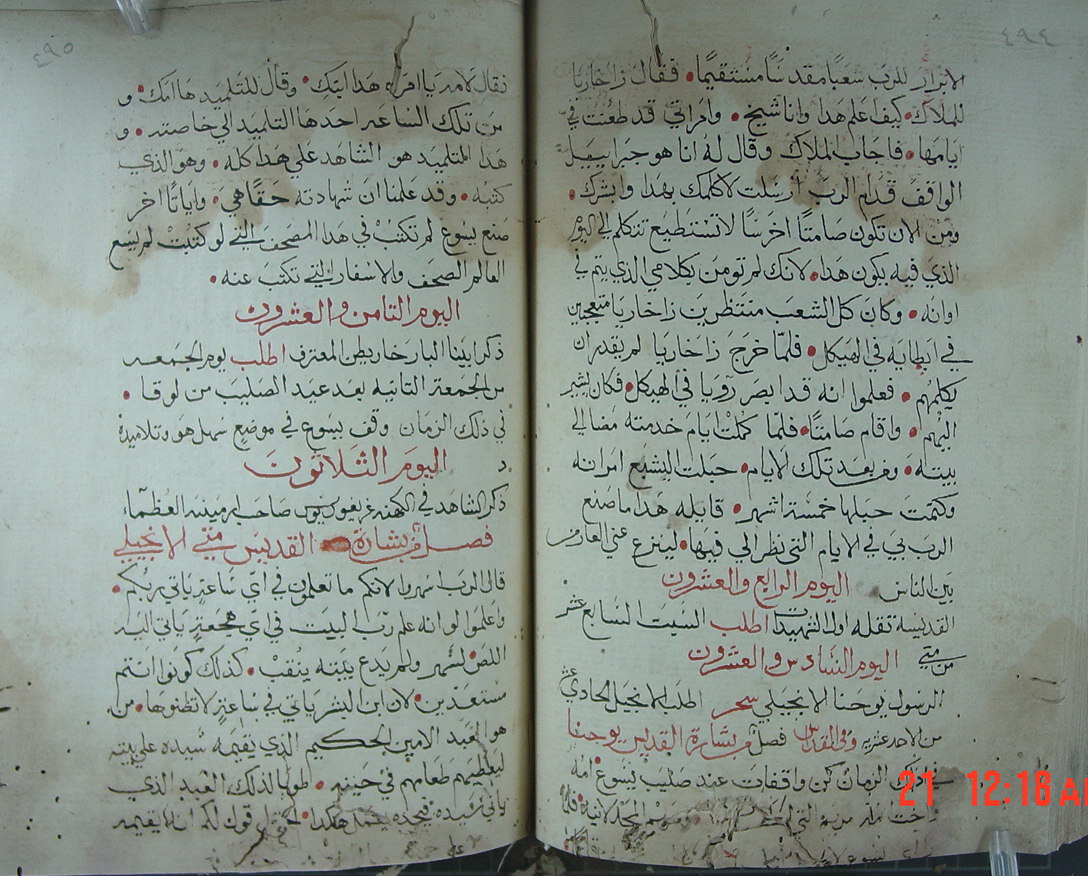 ٤٩٤
الابرار للرب شعبًا مقدسًا مستقيمًا • فقال زاخاريا
للملاك • كيف اعلم هدا وانا شيخ • وامراتي قد طعنت في
ايامها • فاجاب الملاك وقال له انا هو جبراييل
الواقف قدام الرب ارسلت لاكلمك بهدا وابشرك •
ومن الان تكون صامتًا اخرسًا لاتستطيع تتكلم الي اليوم
الذي فيه يكون هدا • لانك لم تومن بكلامي الدي يتم في
اوانه • وكان كل الشعب منتظرين زاخاريا متعجبين
في ابطايه في الهيكل • فلما خرج زاخاريا لم يقدر ان
يكلمهم • فعلموا انه قد ابصر رويا في الهيكل • فكان يشير
اليهم • واقام صامتًا • فلما كملت ايام خدمته مضا الي
بيته • ومن بعد تلك الايام • حبلت اليشبع امراته
وكتمت حبلها خمسة اشهر • قايله هدا ما صنع
الرب بي في الايام التي نظر الي فيها • لينزع عني العار من
بين الناس اليوم الرابع والعشرون
القديسه تقله اولا الشهيدات اطلب السبت السابع عشر
من متي اليوم السادس والعشرون
الرسول يوحنا الانجيلي سحر اطلب الانجيل الحادي عشر
من الاحد عشريه وفي القداس فصل من بشارة القديس يوحنا
في ذلك الزمان كن واقفات عند صليب يسوع امه
واخت امه مريم التي ومريم المجدلانية • فلما
يسوع
٤٩٥
فقال لامه يا امراه هدا ابنكِ • وقال للتلميد ها امك • و
من تلك الساعه اخدها التلميد الي خاصته • و
هدا التلميد هو الشاهد علي هدا كله • وهو الدي
كتبه • وقد علمنا ان شهادته حقًا هي • واياتًا اخر
صنع يسوع لم تكتب في هدا المصحف التي لو كتبت لم يسع
العالم الصحف والاسفار التي تكتب عنه •
اليوم الثامن والعشرون
ذكر ابينا البار خاريطن المعترف اطلب يوم الجمعه
من الجمعة الثانيه بعد عيد الصليب من لوقا •
في ذلك الزمان وقف يسوع في موضع سهل هو وتلاميذه
اليوم الثلاثون
ذكر الشاهد في الكهنه غريغوريوس صاحب ارمينيه العظما
فصل من بشارة القديس متي الانجيلي
قال الرب اسهروا لانكم ما تعلمون في اي ساعةٍ ياتي ربكم •
واعلموا لو انه علم رب البيت في اي هجعةٍ ياتي اليه
اللص لسهر ولم يدع بيته ينقب • كذلك كونوا انتم
مستعدين • لان ابن البشر ياتي في ساعةٍ لا تظنوها • من
هو العبد الامين الحكيم الذي يقيمه سيده علي بيته
ليعطيهم طعامهم في حينه • طوبا لذلك العبد الذي
ياتي سيده فيجده يعمل هكدا • الحق اقول لكم انه يقيمه